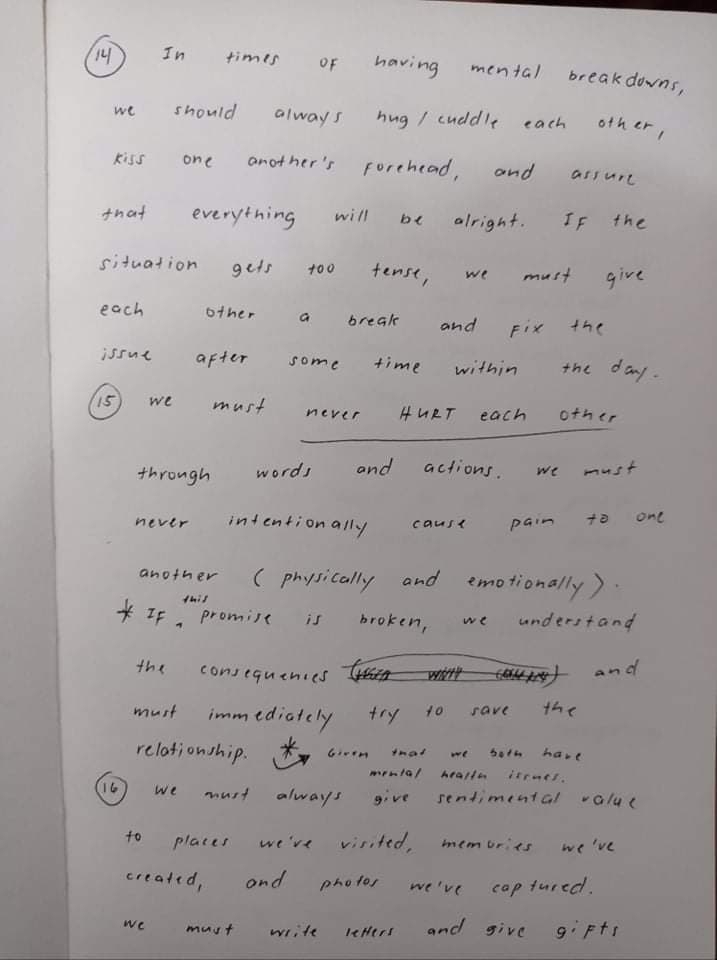 14 In times of having mental breakdowns,
we should always hug / cuddle each other,
kiss one another's forehead, and assure
that everything will be alright. If the
situation gets too tense, we must give
each other a break and fix the
issue after some time within the day.
15 we must never HURT each other
through words and actions. we must
never intentionally cause pain to one
another (physically and emotionally).
* If this promise is broken, we understand
the consequences and
must immediately try to save the
relationship. * Given that we both have
mental health issues.
16 we must always give sentimental value
to places we've visited, memories we've
created, and photos we've captured.
we must write letters and give gifts